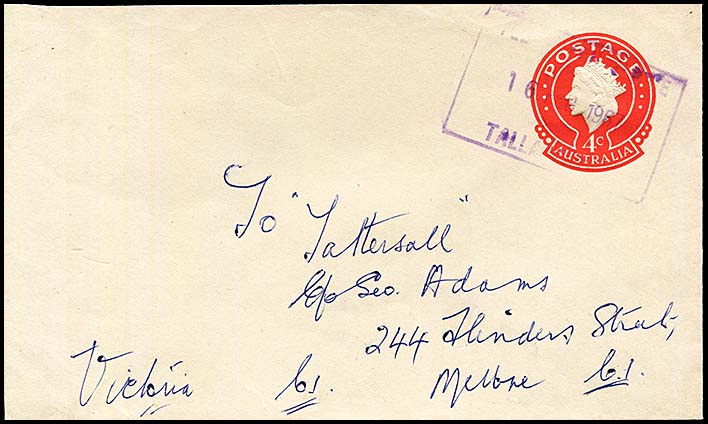 POSTAGE
4c
AUSTRALIA
16
196
TALLA
To "Tattersall"
C/o Geo. Adams
244 Flinders Street,
Melbne C.1.
Victoria C1.